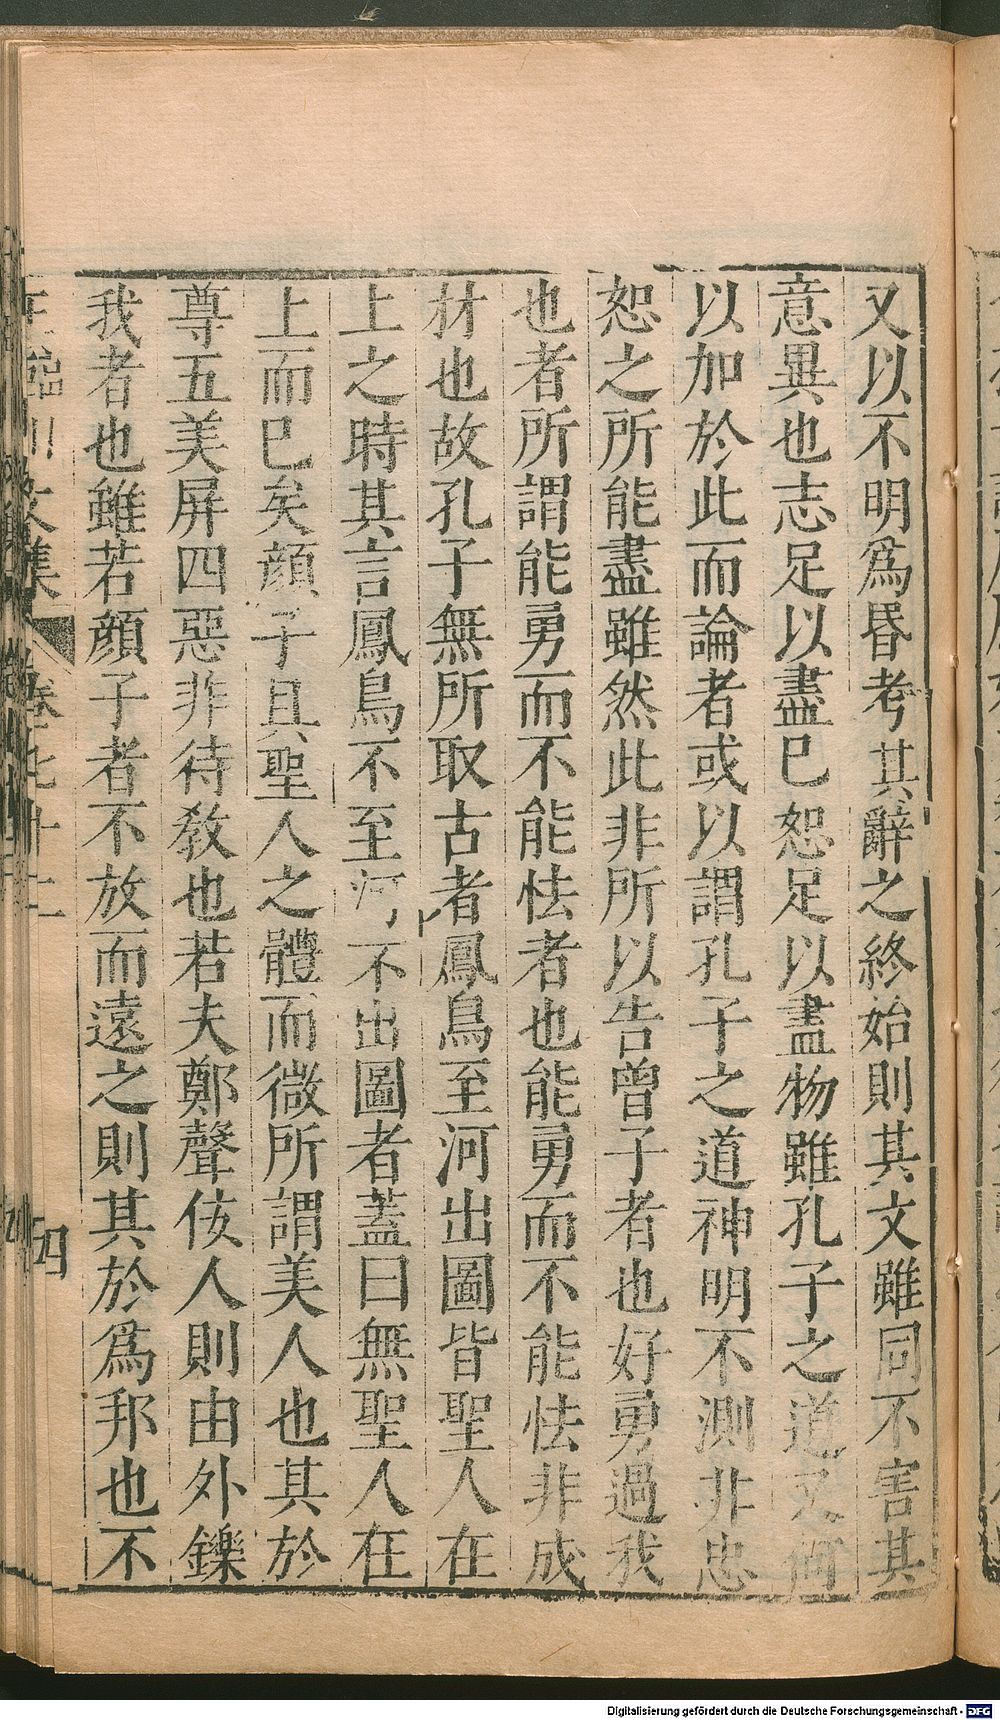 又以不明爲昬考其辭之終始則其文雖同不害其
意異也志足以盡已恕足以盡物雖孔子之道又何
以加於此而論者或以謂孔子之道神明不測非忠
恕之所能盡雖然此非所以告曾子者也好勇過我
也者所謂能勇而不能怯者也能勇而不能怯非成
材也故孔子無所取古者鳳鳥至河出圖皆聖人在
上之時其言鳳鳥不至河不出圖者蓋曰無聖人在
上而巳矣顔子具聖人之體而微所謂美人也其於
尊五美屏四惡非待教也若夫鄭聲佞人則由外鑠
我者也雖若顔子者不放而遠之則其於爲邦也不
王臨川文集 卷七十二 四
Digitalisierung gefördert durch die Deutsche Forschungsgemeinschaft - DFG